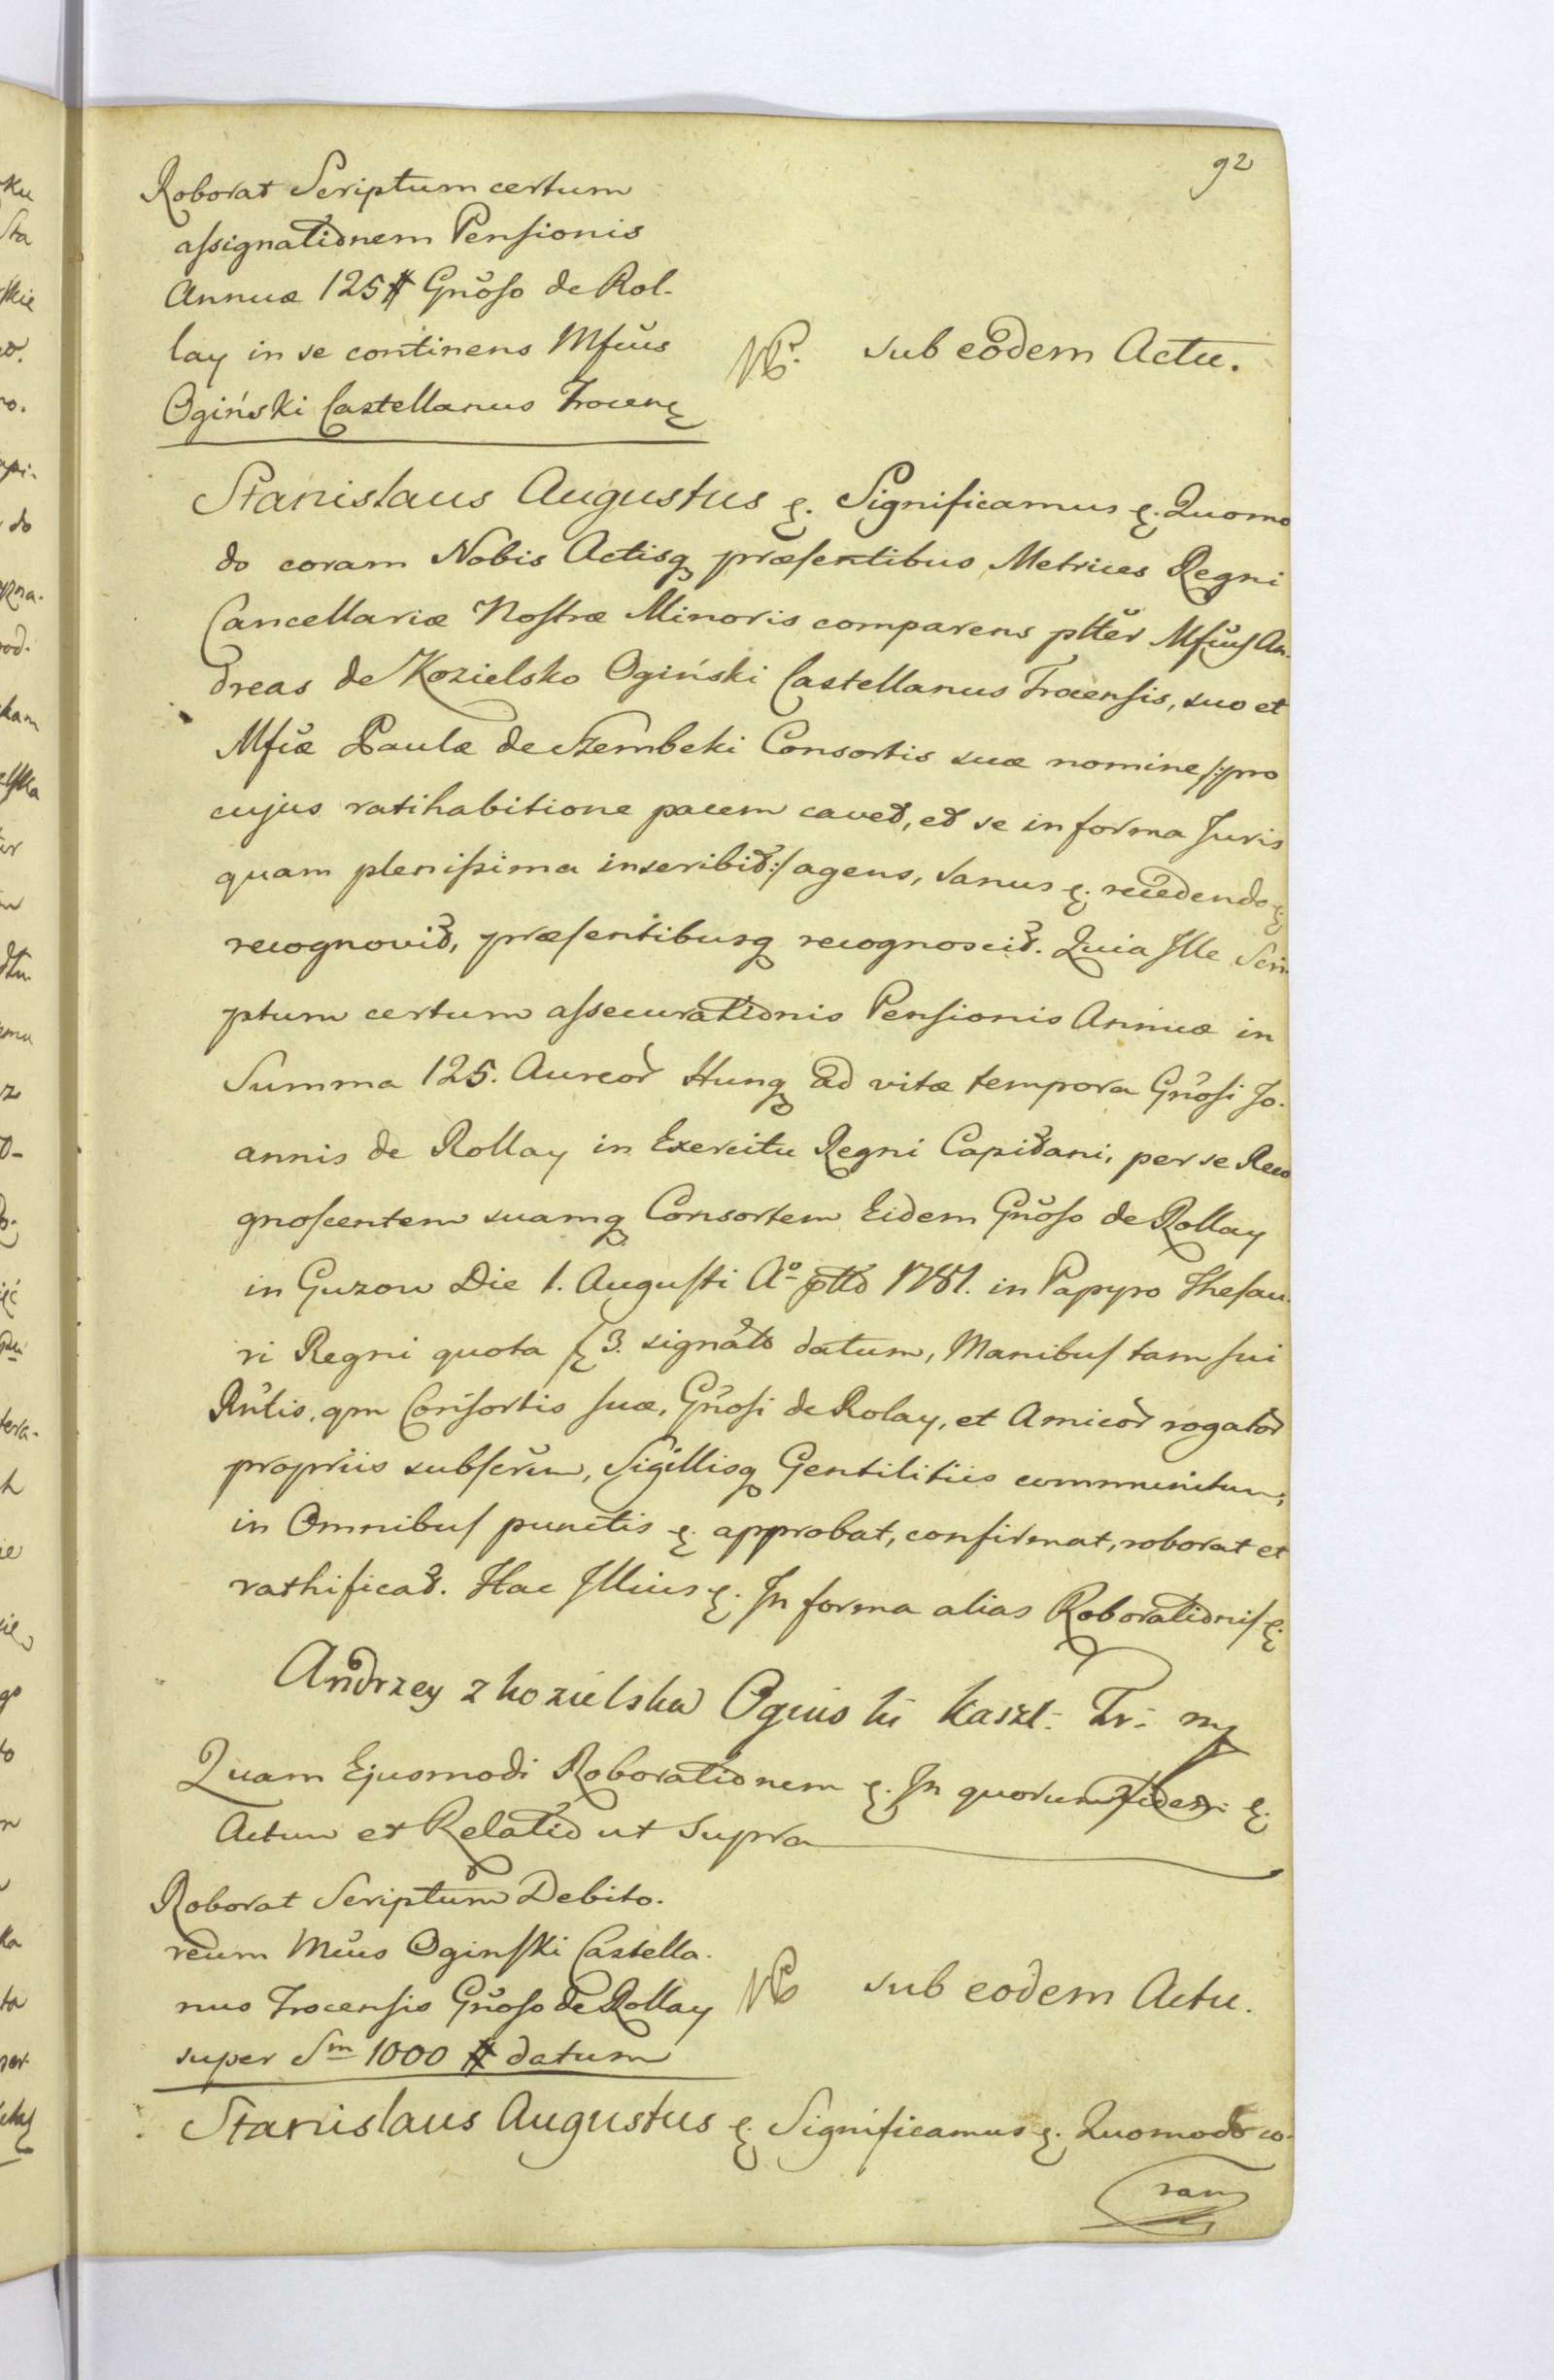 92
Roborat Scriptum certum
assignationem Pensionis
Annuæ 125 # Gnoso de Rol-
lay in se continens Mfcus
Ogiński Castellanus Trocen
sub eodem Actu.
Stanislaus Augustus &. Significamus &. Quomo
do coram Nobis Actisq præsentibus Metrices Regni
Cancellariæ Nostræ Minoris comparens pltter Mfcus An-
dreas de Kozielsko Ogiński Castellanus Trocensis, suo et
Mfcæ Paulæ de Szembeki Consortis suæ nomine /:pro
cujus ratihabitione pacem cavet, et se in forma Juris
quam plenissima inscribit:/ agens, sanus &. recedendo &.
recognovit, præsentibusq recognoscit. Quia Ille Scri-
ptum certum assecurationis Pensionis Annuæ in
Summa 125. Aureor Hung ad vitæ tempora Gnosi Jo-
annis de Rollay in Exercitu Regni Capitani, per se Reco
gnoscentem suamq Consortem Eidem Gnoso de Rollay
in Guzow Die 1. Augusti Aº 1781. in Papyro Thesau-
ri Regni quota f 3. signato datum, Manibus tam sui
Rntis, qm Consortis suæ, Gnosi de Rolay, et Amicor rogator
propriis subscrum, Sigillisq Gentilitiis communitum,
in Omnibus punctis &. approbat, confirmat, roborat et
rathificat. Hac Illius &. In forma alias Roborationis &.
Andrzey z Kozielska Oginski Kaszt: Tr: mp
Quam Ejusmodi Roborationem &. In quorum fidem &.
Actum et Relatio ut supra
Roborat Scriptum Debito-
reum Mcus Oginski Castella-
nus Trocensis Gnoso de Rollay
super Sm 1000 # datum
sub eodem Actu.
Stanislaus Augustus &. Significamus &. Quomodo co-
ram